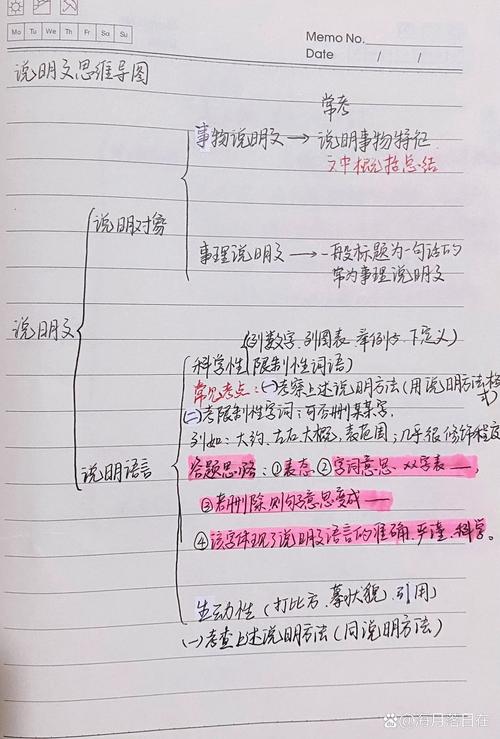 Mo Tu We Th Fr Sa Su
Memo No.
Date / /
说明文思维导图
常考
事物说明文→说明事物特征
文中概括总结
说明对象
事理说明文→一般标题为一句话的
常为事理说明文
说明文
(列数字、列图表、举例子、下定义)
科学性(限制性词语)
常见考点:(一)考察上述说明方法(用说明方法格式)
(二)考限制性字词:可否删某某字,
例如:大约、左右、大概,表范围;几乎很修饰程度
说明语言
答题思路:①表态②字词意思、XX字表——
③若删除则句子意思变成——
④该字体现了说明文语言的准确、严谨、科学。
生动性(打比方、摹状貌、引用)
(一)考查上述说明方法(同说明方法)
Bai百度 @海月落日在